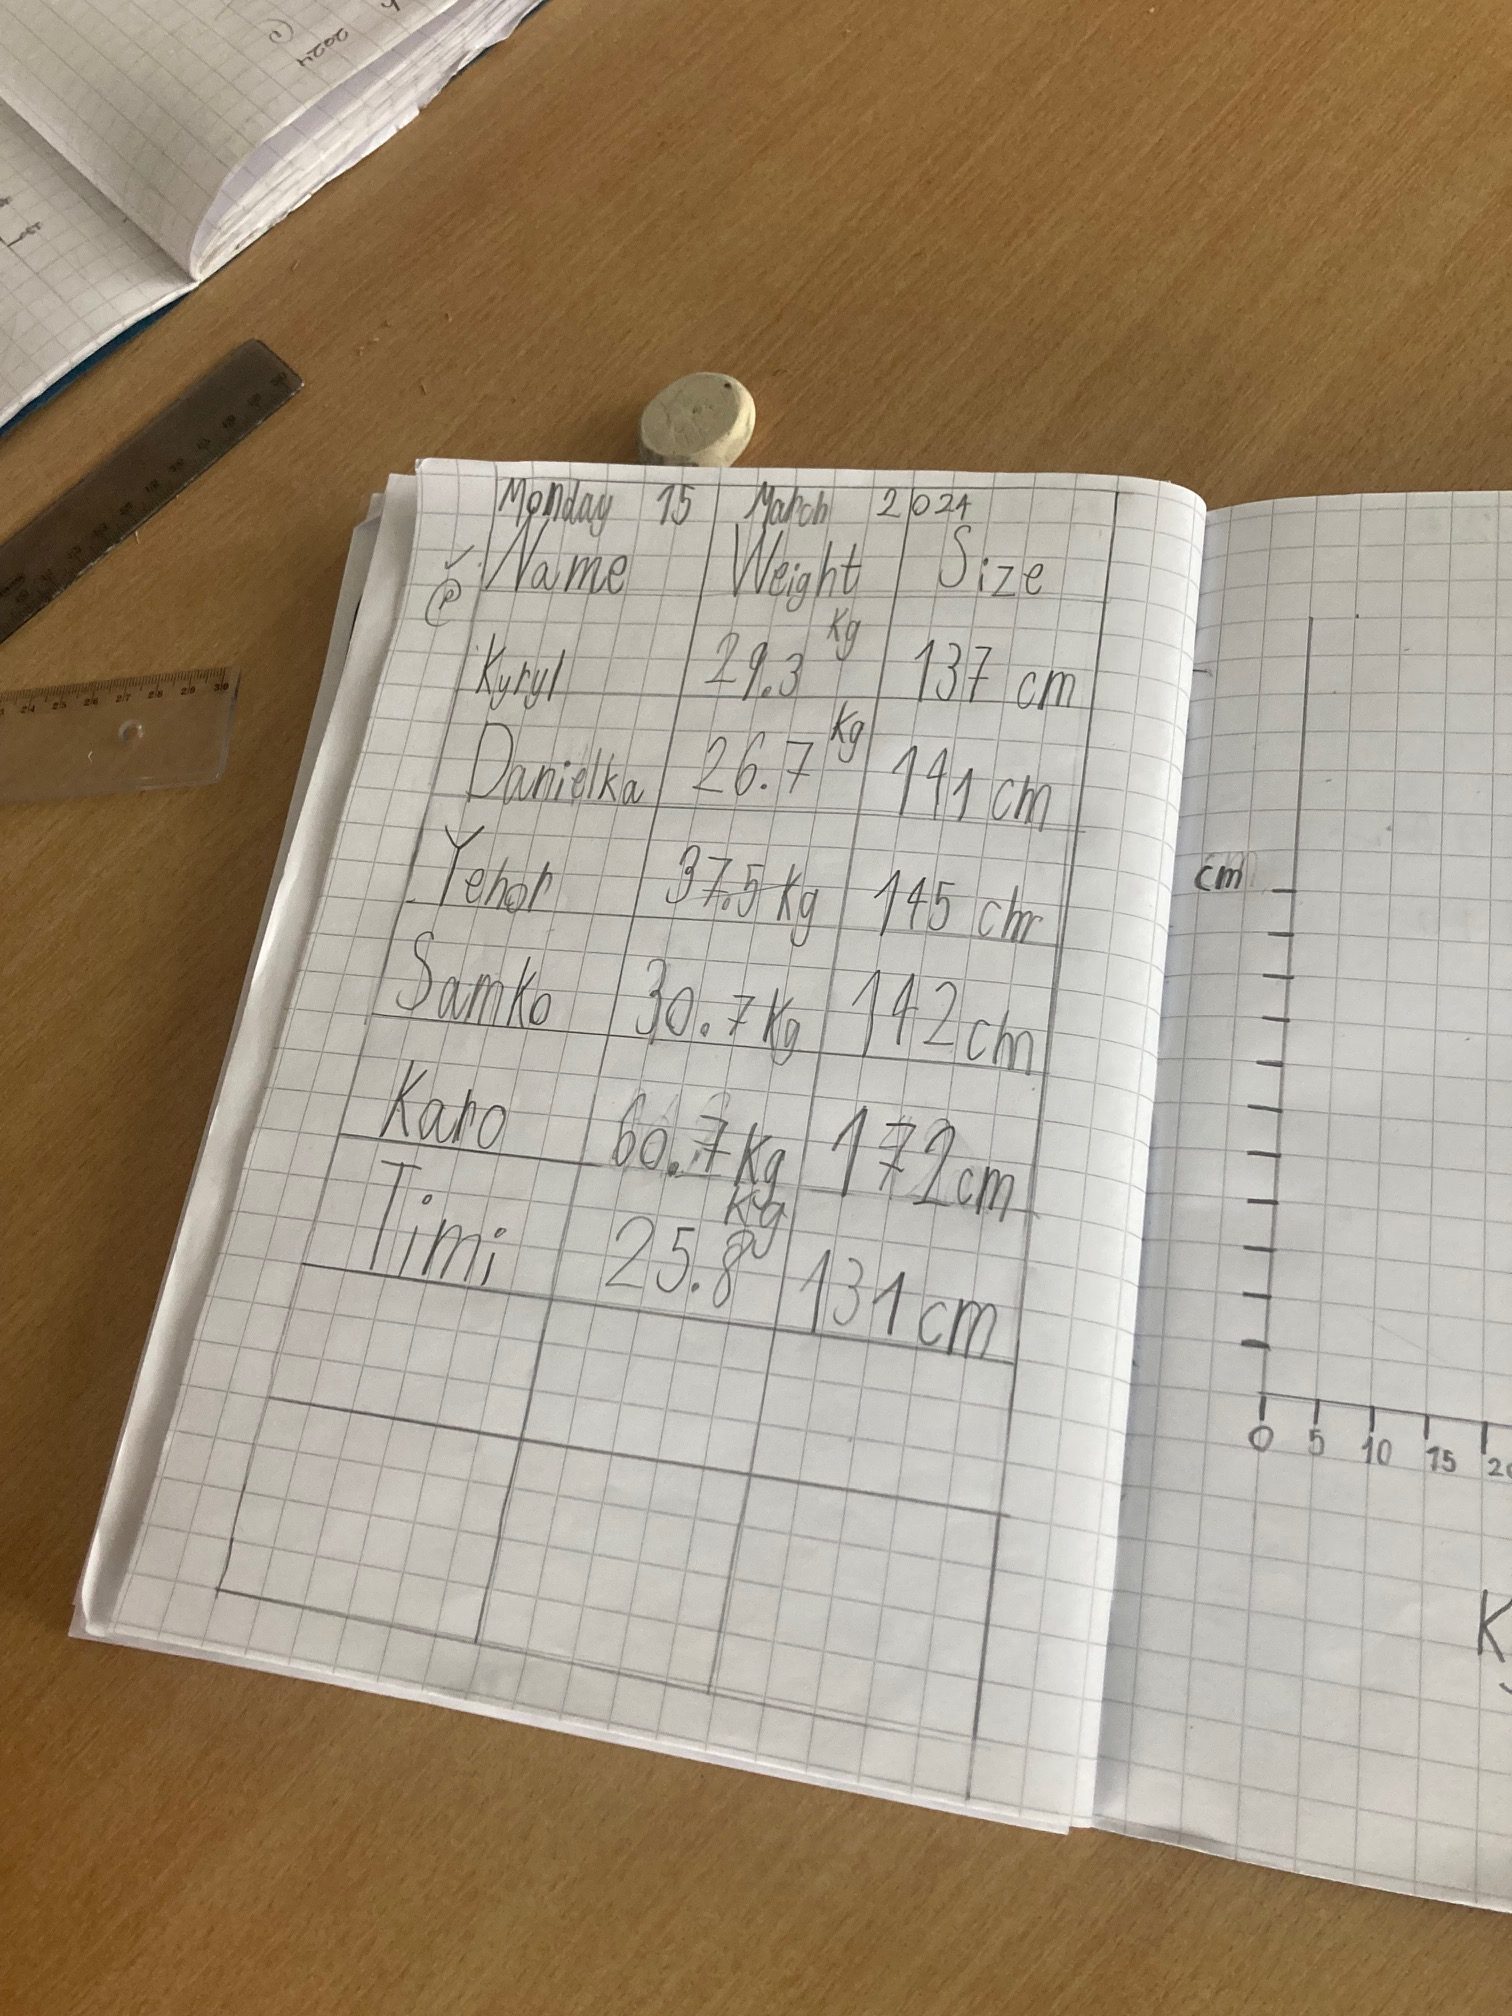 Monday 15 March 2024
Name Weight Size
Kyryl 29.3 Kg 137 cm
Danielka 26.7 Kg 141 cm
Yehor 37.5 Kg 145 cm
Samko 30.7 Kg 142 cm
Karo 60.7 Kg 172 cm
Timi 25.8 Kg 131 cm
cm
0 5 10 15
2024
24 25 26 27 28 29 30